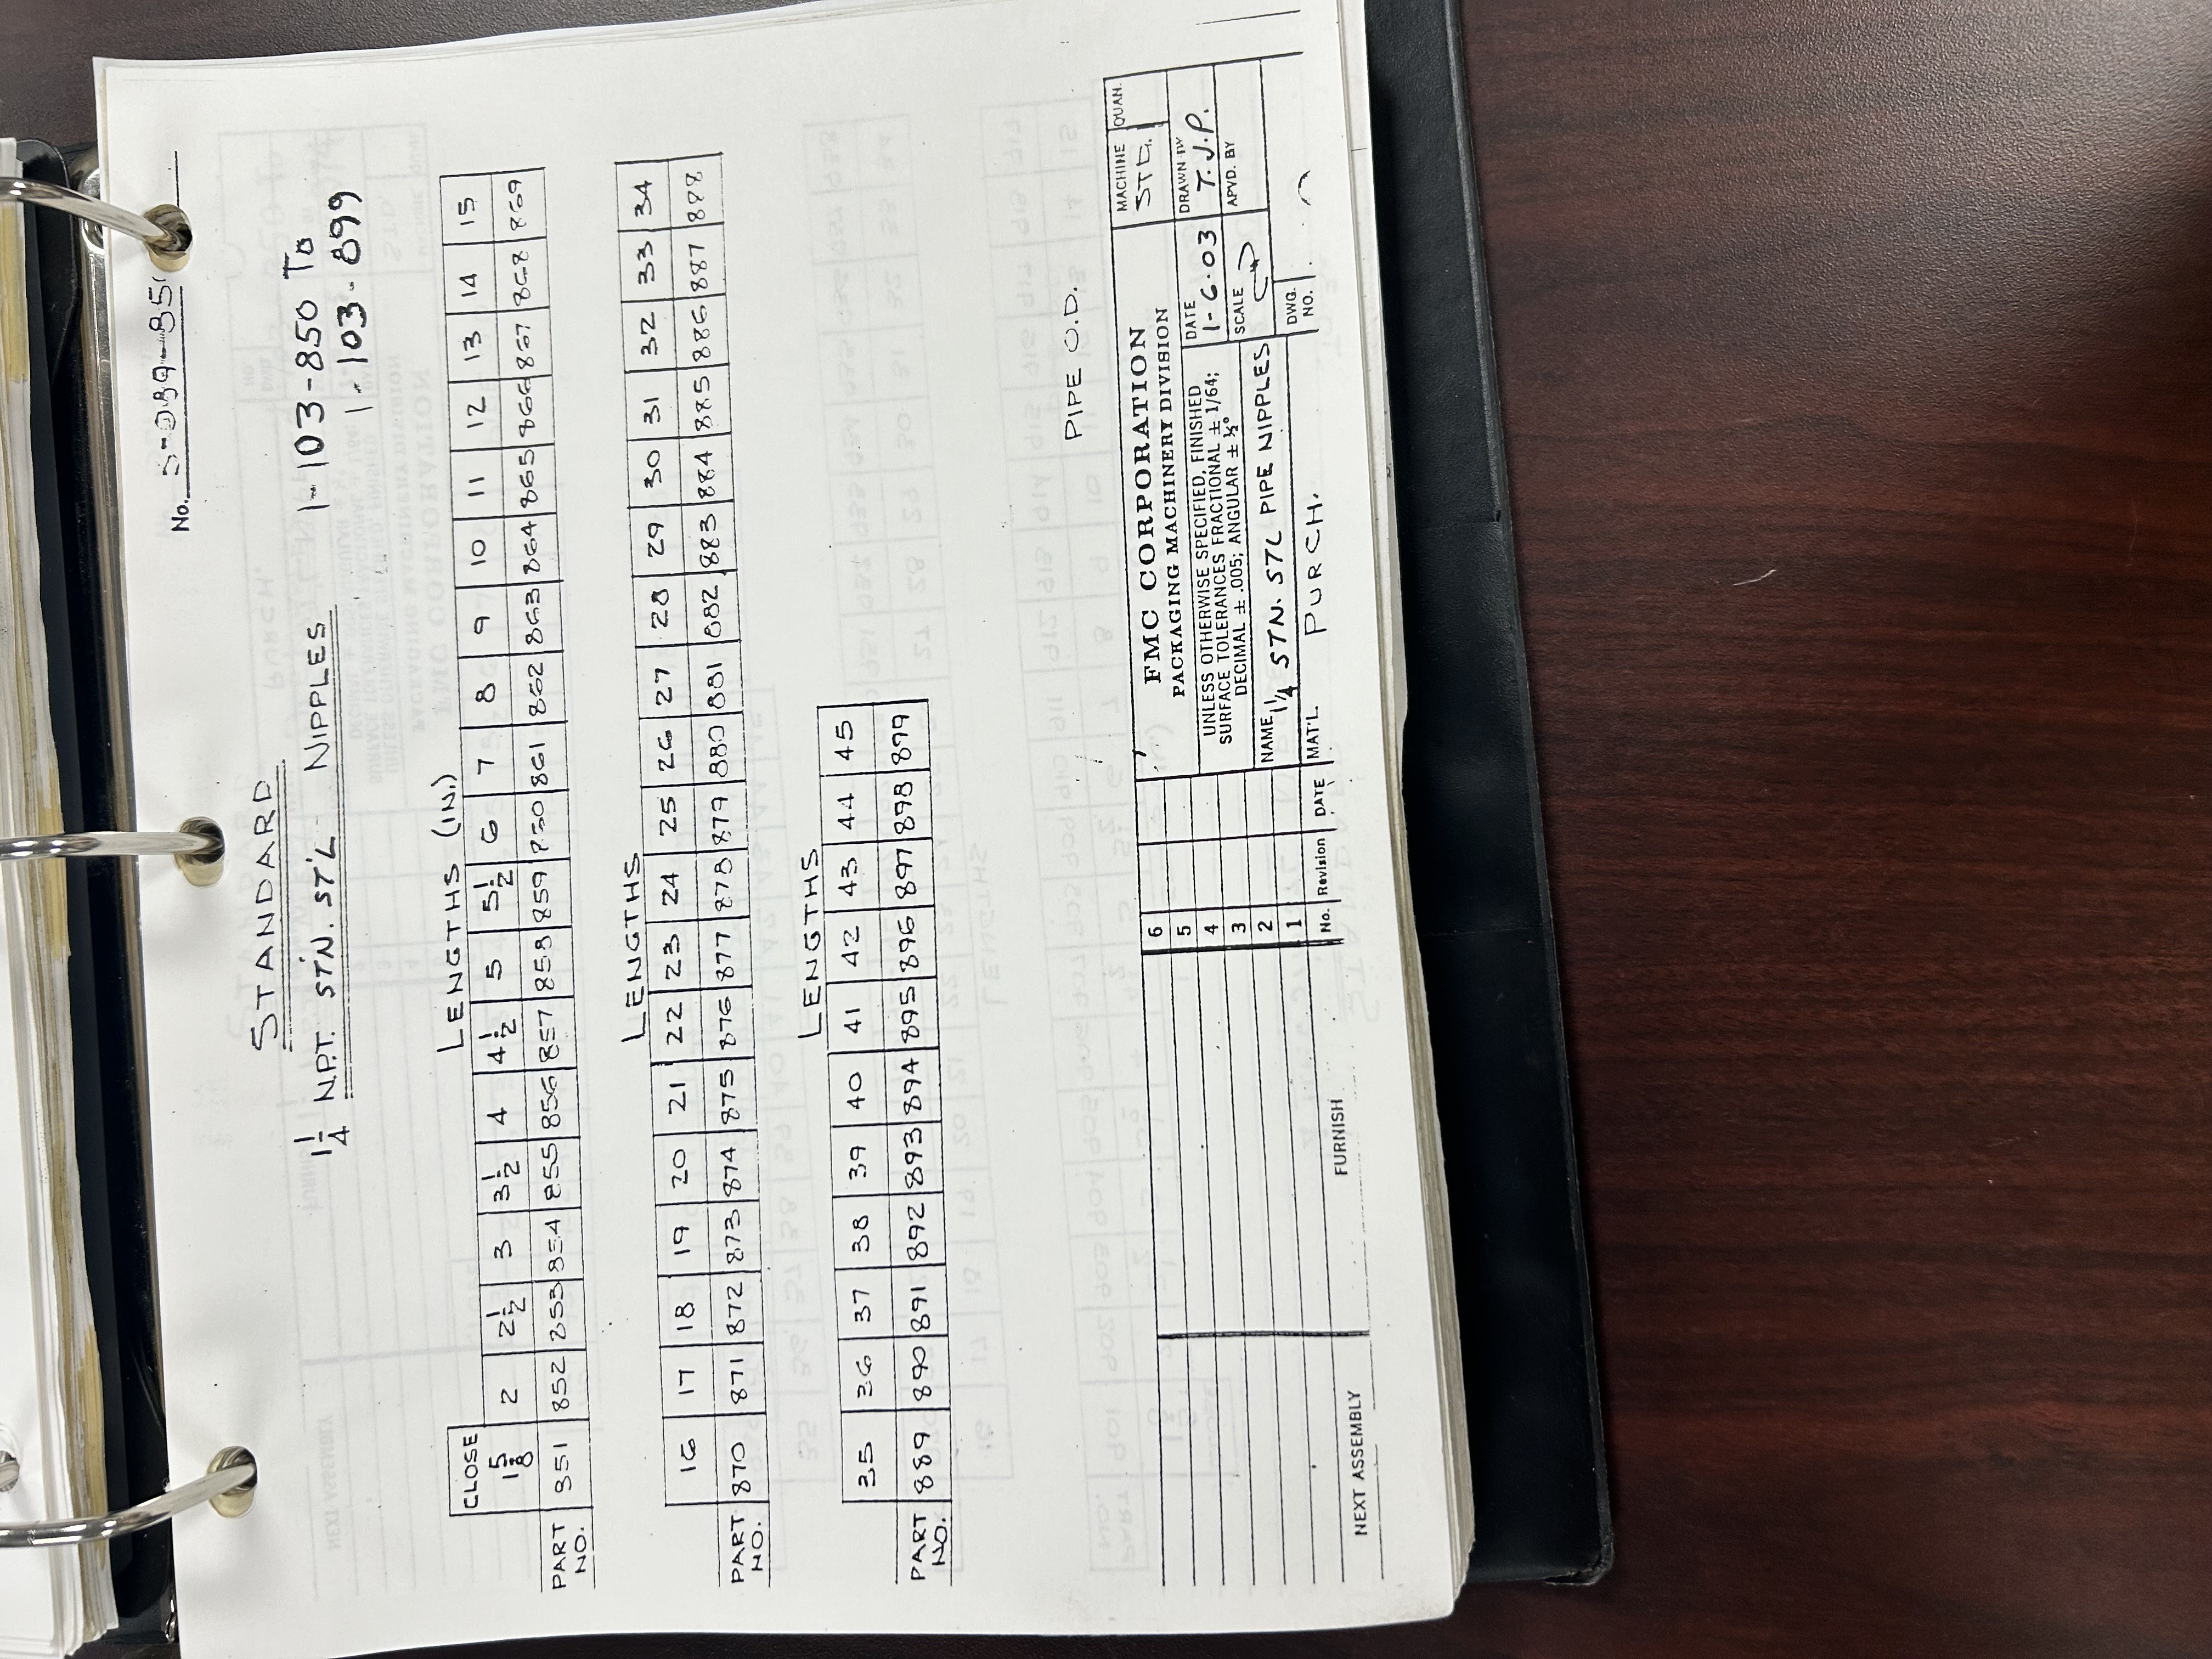 No. 5-089-851
STANDARD
1 1/4 N.P.T. STN. ST'L NIPPLES
1-103-850 TO
1-103-899
LENGTHS (IN.)
CLOSE 1 5/8 2 2 1/2 3 3 1/2 4 4 1/2 5 5 1/2 6 7 8 9 10 11 12 13 14 15
PART NO. 851 852 853 854 855 856 857 858 859 860 861 862 863 864 865 866 867 868 869
LENGTHS
16 17 18 19 20 21 22 23 24 25 26 27 28 29 30 31 32 33 34
PART NO. 870 871 872 873 874 875 876 877 878 879 880 881 882 883 884 885 886 887 888
LENGTHS
35 36 37 38 39 40 41 42 43 44 45
PART NO. 889 890 891 892 893 894 895 896 897 898 899
PIPE O.D.
NEXT ASSEMBLY
FURNISH
6
5
4
3
2
1
No. Revision DATE
FMC CORPORATION
PACKAGING MACHINERY DIVISION
UNLESS OTHERWISE SPECIFIED, FINISHED
SURFACE TOLERANCES FRACTIONAL ± 1/64;
DECIMAL ± .005; ANGULAR ± ½°
NAME 1 1/4 STN. STL PIPE NIPPLES
MAT'L PURCH.
MACHINE STD.
QUAN.
DATE 1-6-03
DRAWN BY T.J.P.
SCALE
APVD. BY
DWG. NO.